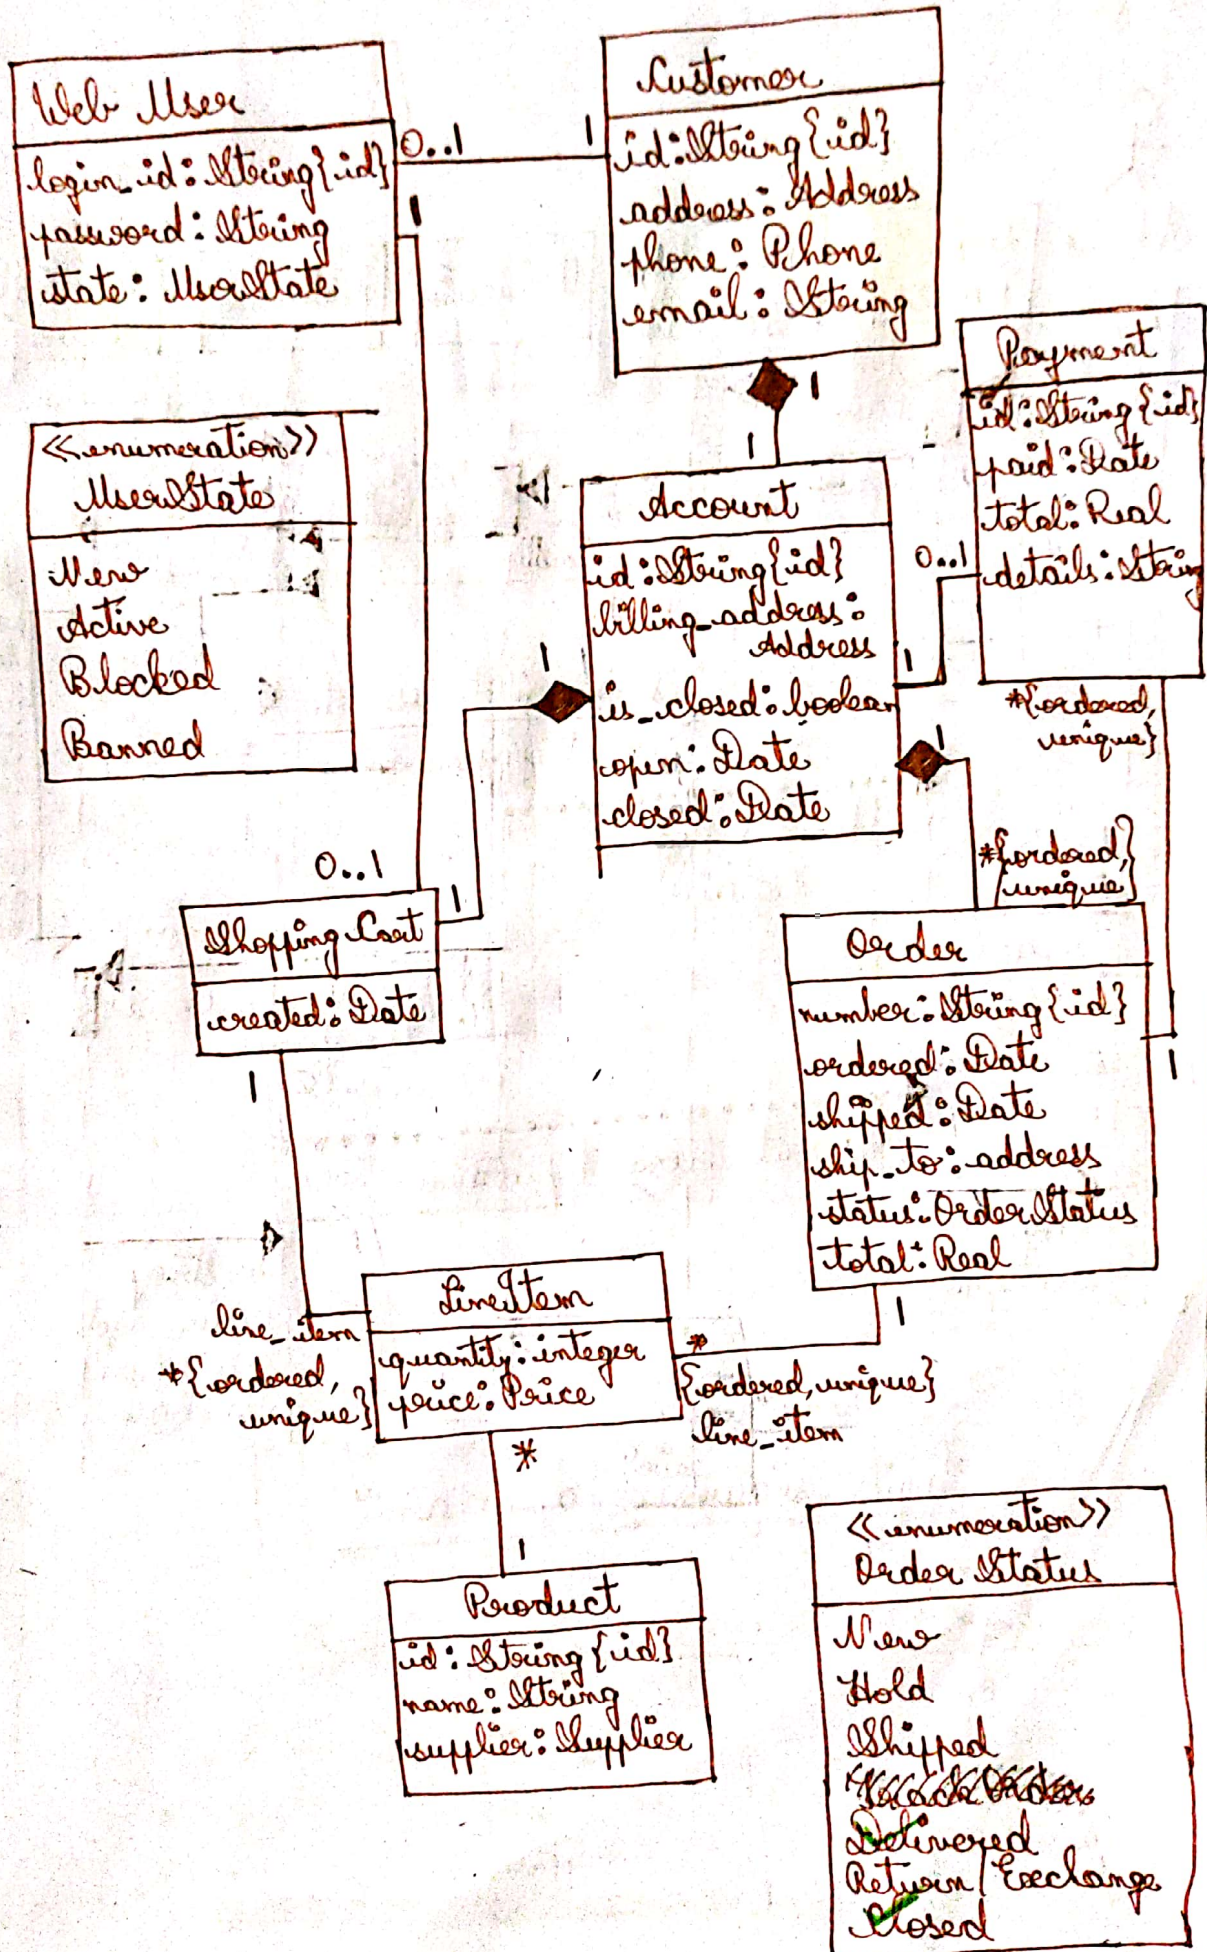 Web User
login_id: String{id}
password: String
state: UserState
0..1
1
1
Customer
id: String{id}
address: Address
phone: Phone
email: String
1
1
Payment
id: String{id}
paid: Date
total: Real
details: String
0..1
1
*{ordered,
unique}
<<enumeration>>
UserState
New
Active
Blocked
Banned
Account
id: String{id}
billing_address:
Address
is_closed: boolean
open: Date
closed: Date
1
1
*{ordered,
unique}
0..1
1
Shopping Cart
created: Date
1
Order
number: String{id}
ordered: Date
shipped: Date
ship_to: address
status: OrderStatus
total: Real
1
1
line_item
*{ordered,
unique}
LineItem
quantity: integer
price: Price
*
{ordered, unique}
line_item
*
1
Product
id: String{id}
name: String
supplier: Supplier
<<enumeration>>
Order Status
New
Hold
Shipped
Delivered
Return/Exchange
Closed